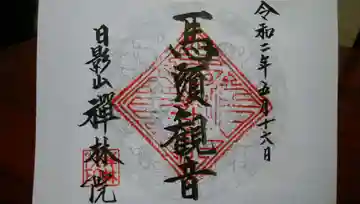 令和二年五月十六日
馬頭観音
日影山禅林院